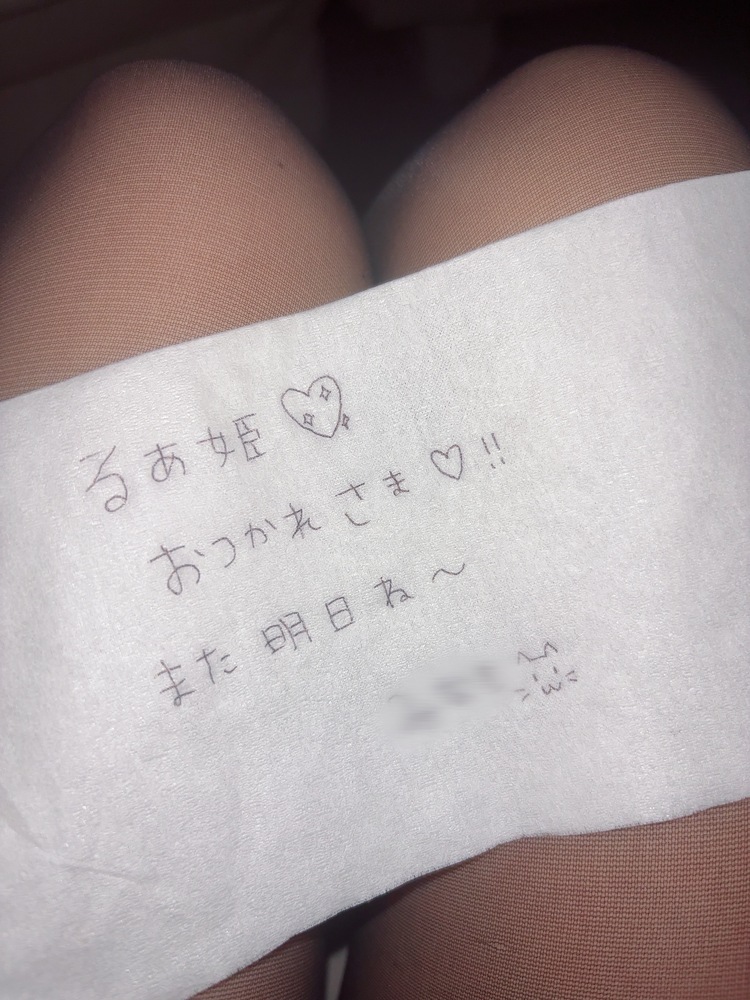 るあ姫♡
おつかれさま♡!!
また明日ね〜